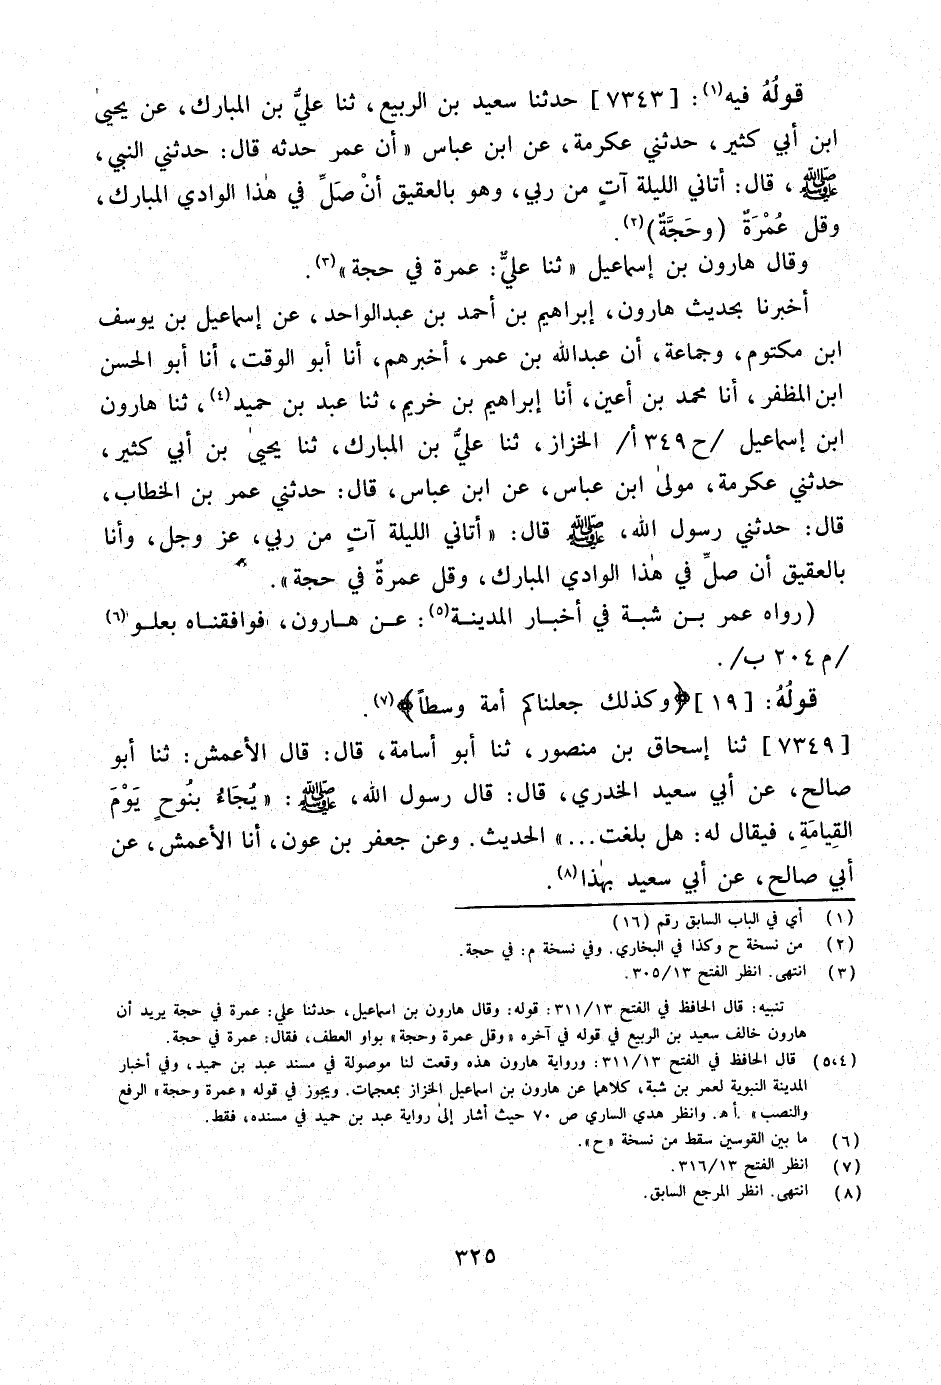 قولُهُ فيه(١): [٧٣٤٣] حدثنا سعيد بن الربيع، ثنا عليُّ بن المبارك، عن يحيىٰ
ابن أبي كثير، حدثني عكرمة، عن ابن عباس «أن عمر حدثه قال: حدثني النبي،
ﷺ، قال: أتاني الليلة آتٍ من ربي، وهو بالعقيق أنْ صَلِّ في هٰذا الوادي المبارك،
وقل عُمْرَةٌ (وحَجَّةٌ)(٢).
وقال هارون بن إسماعيل «ثنا عليٌّ: عمرة في حجة»(٣).
أخبرنا بحديث هارون، إبراهيم بن أحمد بن عبدالواحد، عن إسماعيل بن يوسف
ابن مكتوم، وجماعة، أن عبدالله بن عمر، أخبرهم، أنا أبو الوقت، أنا أبو الحسن
ابن المظفر، أنا محمد بن أعين، أنا إبراهيم بن خريم، ثنا عبد بن حميد(٤)، ثنا هارون
ابن إسماعيل /ح٣٤٩أ/ الخزاز، ثنا عليُّ بن المبارك، ثنا يحيىٰ بن أبي كثير،
حدثني عكرمة، مولىٰ ابن عباس، عن ابن عباس، قال: حدثني عمر بن الخطاب،
قال: حدثني رسول الله، ﷺ قال: «أتاني الليلة آتٍ من ربي، عز وجل، وأنا
بالعقيق أن صلِّ في هٰذا الوادي المبارك، وقل عمرةٌ في حجة».
(رواه عمر بـن شبـة في أخبـار المدينـة(٥): عـن هـارون، فوافقنـاه بعلـو(٦)
/م٢٠٤ب/.
قولُهُ: [١٩] ﴿وكذلك جعلناكم أمة وسطاً﴾(٧).
[٧٣٤٩] ثنا إسحاق بن منصور، ثنا أبو أسامة، قال: قال الأعمش: ثنا أبو
صالح، عن أبي سعيد الخدري، قال: قال رسول الله، ﷺ: «يُجَاءُ بنُوحٍ يَوْمَ
القِيامَةِ، فيقال له: هل بلغت...» الحديث. وعن جعفر بن عون، أنا الأعمش، عن
أبي صالح، عن أبي سعيد بهٰذا(٨).
(١) أي في الباب السابق رقم (١٦)
(٢) من نسخة ح وكذا في البخاري. وفي نسخة م: في حجة.
(٣) انتهى. انظر الفتح ٣٠٥/١٣.
تنبيه: قال الحافظ في الفتح ٣١١/١٣: قوله: وقال هارون بن اسماعيل، حدثنا علي: عمرة في حجة يريد أن
هارون خالف سعيد بن الربيع في قوله في آخره «وقل عمرة وحجة» بواو العطف، فقال: عمرة في حجة.
(٥،٤) قال الحافظ في الفتح ٣١١/١٣: ورواية هارون هذه وقعت لنا موصولة في مسند عبد بن حميد، وفي أخبار
المدينة النبوية لعمر بن شبة، كلاهما عن هارون بن اسماعيل الخزاز بمعجمات. ويجوز في قوله «عمرة وحجة» الرفع
والنصب» .أ هـ. وانظر هدي الساري ص ٧٠ حيث أشار إلىٰ رواية عبد بن حميد في مسنده، فقط.
(٦) ما بين القوسين سقط من نسخة «ح».
(٧) انظر الفتح ٣١٦/١٣.
(٨) انتهى. انظر المرجع السابق.
٣٢٥